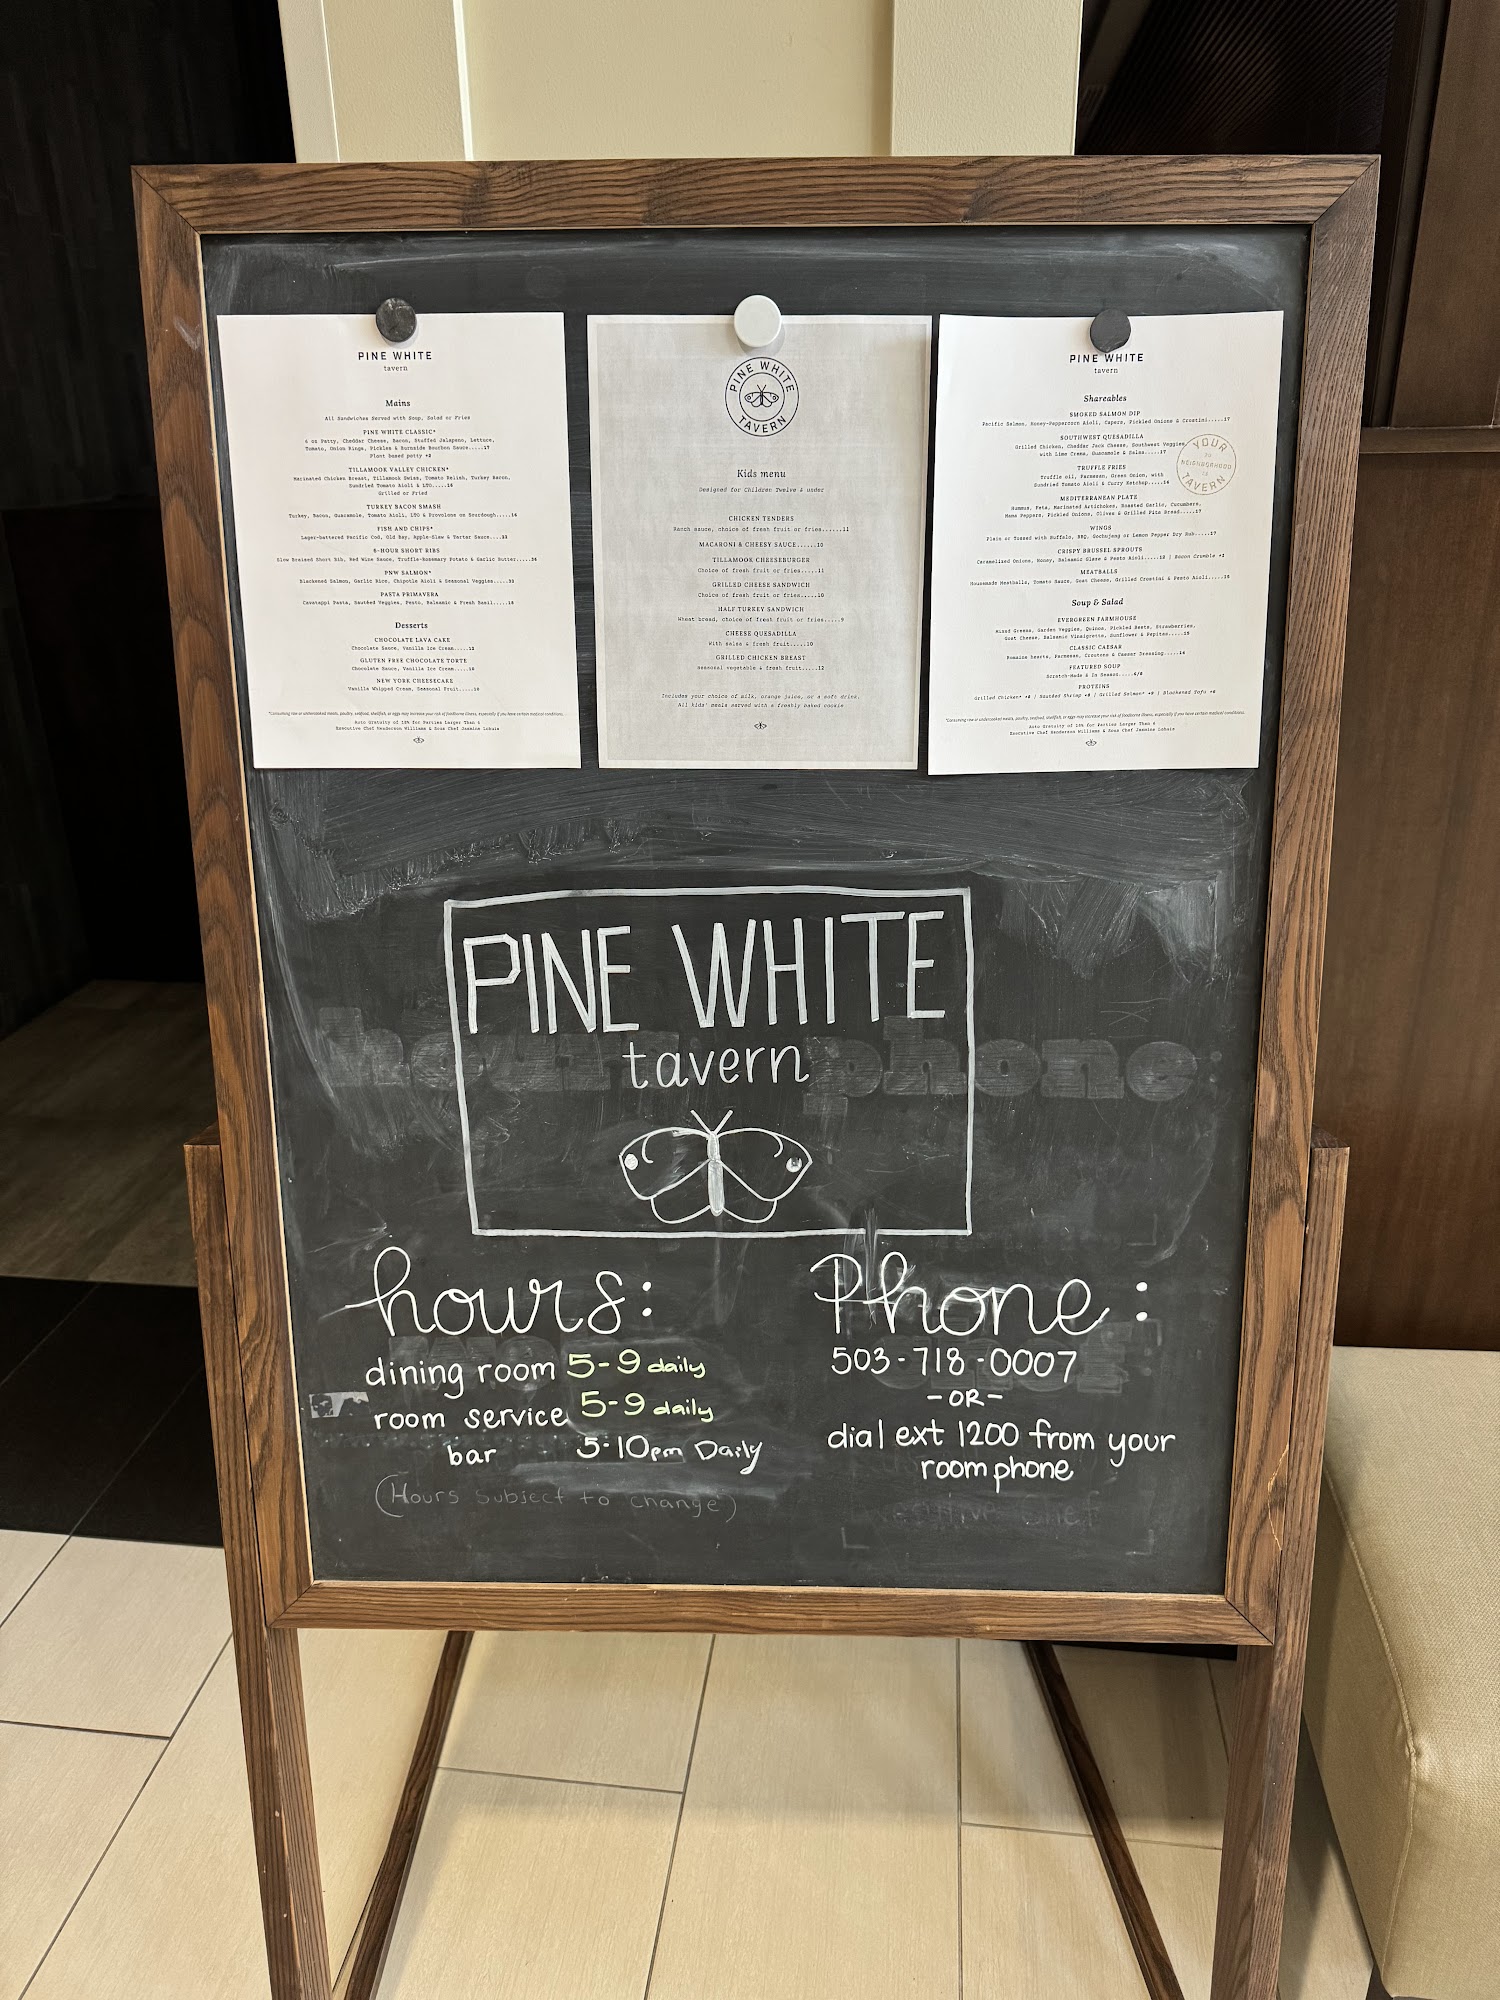 PINE WHITE
tavern
Mains
All Sandwiches Served with Soup, Salad or Fries
PINE WHITE CLASSIC*
6 oz Patty, Cheddar Cheese, Bacon, Stuffed Jalapeno, Lettuce,
Tomato, Onion Rings, Pickles & Burnside Bourbon Sauce.....17
Plant based patty +2
TILLAMOOK VALLEY CHICKEN*
Marinated Chicken Breast, Tillamook Swiss, Tomato Relish, Turkey Bacon,
Sundried Tomato Aioli & LTO.....16
Grilled or Fried
TURKEY BACON SMASH
Turkey, Bacon, Guacamole, Tomato Aioli, LTO & Provolone on Sourdough.....16
FISH AND CHIPS*
Lager-battered Pacific Cod, Old Bay, Apple-Slaw & Tartar Sauce....23
6-HOUR SHORT RIBS
Slow Braised Short Rib, Red Wine Sauce, Truffle-Rosemary Potato & Garlic Butter.....34
PNW SALMON*
Blackened Salmon, Garlic Rice, Chipotle Aioli & Seasonal Veggies.....32
PASTA PRIMAVERA
Cavatappi Pasta, Sautéed Veggies, Pesto, Balsamic & Fresh Basil.....18
Desserts
CHOCOLATE LAVA CAKE
Chocolate Sauce, Vanilla Ice Cream.....12
GLUTEN FREE CHOCOLATE TORTE
Chocolate Sauce, Vanilla Ice Cream.....10
NEW YORK CHEESECAKE
Vanilla Whipped Cream, Seasonal Fruit.....10
*Consuming raw or undercooked meats, poultry, seafood, shellfish, or eggs may increase your risk of foodborne illness, especially if you have certain medical conditions.
Auto Gratuity of 18% for Parties Larger Than 6
Executive Chef Henderson Williams & Sous Chef Jasmine
PINE WHITE
TAVERN
Kids menu
Designed for Children Twelve & under
CHICKEN TENDERS
Ranch sauce, choice of fresh fruit or fries......11
MACARONI & CHEESY SAUCE......10
TILLAMOOK CHEESEBURGER
Choice of fresh fruit or fries.....11
GRILLED CHEESE SANDWICH
Choice of fresh fruit or fries.....10
HALF TURKEY SANDWICH
Wheat bread, choice of fresh fruit or fries.....9
CHEESE QUESADILLA
With salsa & fresh fruit.....10
GRILLED CHICKEN BREAST
seasonal vegetable & fresh fruit.....12
Includes your choice of milk, orange juice, or a soft drink.
All kids' meals served with a freshly baked cookie
PINE WHITE
tavern
Shareables
SMOKED SALMON DIP
Pacific Salmon, Honey-Peppercorn Aioli, Capers, Pickled Onions & Crostini.....17
SOUTHWEST QUESADILLA
Grilled Chicken, Cheddar Jack Cheese, Southwest Veggies
with Lime Crema, Guacamole & Salsa.....17
YOUR
NEIGHBORHOOD
TAVERN
TRUFFLE FRIES
Truffle oil, Parmesan, Green Onion, with
Sundried Tomato Aioli & Curry Ketchup.....14
MEDITERRANEAN PLATE
Hummus, Feta, Marinated Artichokes, Roasted Garlic, Cucumbers,
Mama Peppers, Pickled Onions, Olives & Grilled Pita Bread.....17
WINGS
Plain or Tossed with Buffalo, BBQ, Gochujang or Lemon Pepper Dry Rub.....17
CRISPY BRUSSEL SPROUTS
Caramelized Onions, Honey, Balsamic Glaze & Pesto Aioli.....12 | Bacon Crumble +2
MEATBALLS
Housemade Meatballs, Tomato Sauce, Goat Cheese, Grilled Crostini & Pesto Aioli.....16
Soup & Salad
EVERGREEN FARMHOUSE
Mixed Greens, Garden Veggies, Quinoa, Pickled Beets, Strawberries,
Goat Cheese, Balsamic Vinaigrette, Sunflower & Pepitas.....15
CLASSIC CAESAR
Romaine hearts, Parmesan, Croutons & Caesar Dressing.....14
FEATURED SOUP
Scratch-Made & In Season.....6/8
PROTEINS
Grilled Chicken* +8 | Sautéed Shrimp +9 | Grilled Salmon* +9 | Blackened Tofu +6
*Consuming raw or undercooked meats, poultry, seafood, shellfish, or eggs may increase your risk of foodborne illness, especially if you have certain medical conditions.
Auto Gratuity of 18% for Parties Larger Than 6
Executive Chef Henderson Williams & Sous Chef Jasmine
PINE WHITE
tavern
hours:
dining room 5-9 daily
room service 5-9 daily
bar 5-10pm Daily
(Hours Subject to change)
Phone:
503-718-0007
-OR-
dial ext 1200 from your
room phone